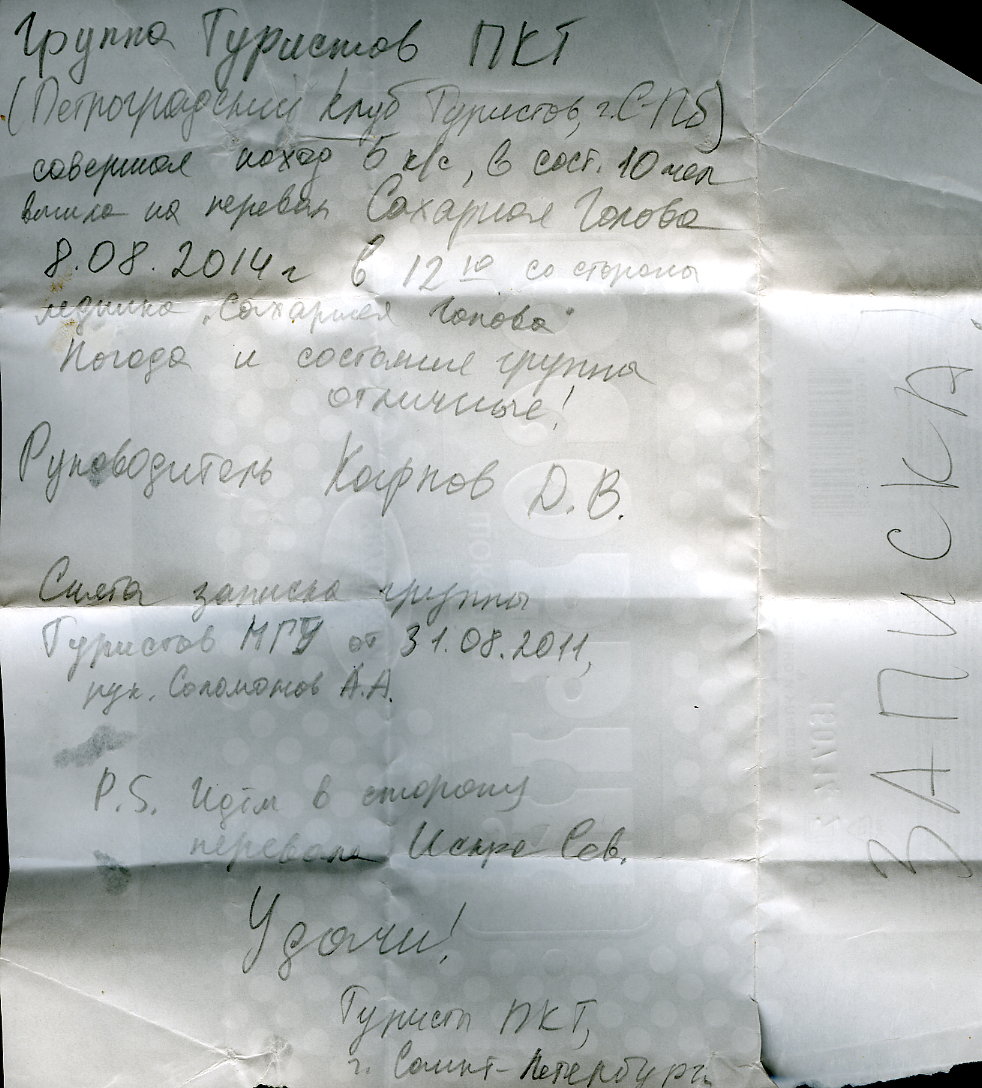 Группа Туристов ПКТ
(Петроградский Клуб Туристов, г. С-Пб)
совершая поход 5 к/с, в сост. 10 чел
вышла на перевал Сахарная Голова
8.08.2014 г в 12 10 со стороны
ледника "Сахарная Голова"
Погода и состояние группы
отличные!
Руководитель Карпов Д.В.
Снята записка группы
Туристов МГУ от 31.08.2011,
рук. Соломонов А.А.
P.S. Идём в сторону
перевала Искра Сев.
Удачи!
Туристы ПКТ,
г. Санкт-Петербург
ЗАПИСКА